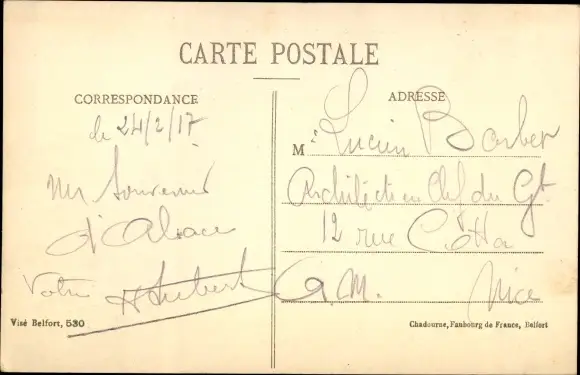 CARTE POSTALE
CORRESPONDANCE
de 24/2/17
un Souvenir
d'Alsace
Votre Hubert
Visé Belfort, 530
ADRESSE
M Lucien Barbet
Architecte en Chef du Gt
12 rue Cotta
A.M. Nice
Chadourne, Faubourg de France, Belfort